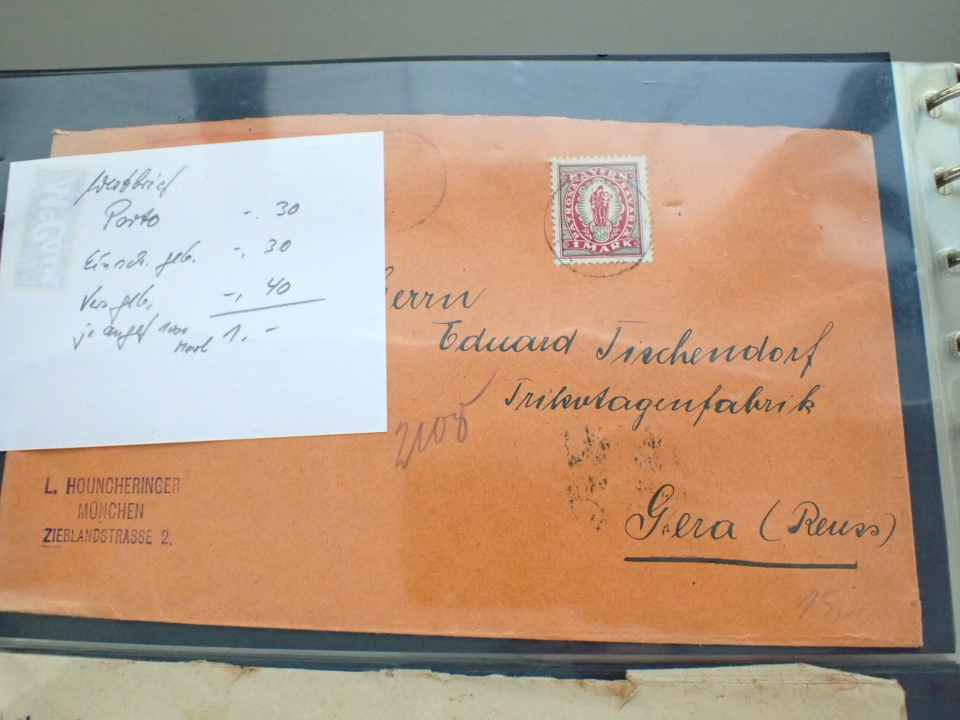 Wertbrief
Porto -. 30
Einsch. geb. -. 30
Vers. geb. -. 40
je angef. 1000 Mark 1. -
PATRONA BAVARIAE
BAYERN
1 MARK
Herrn
Eduard Tischendorf
Trikotagenfabrik
Gera (Reuss)
L. HOUNCHERINGER
MÜNCHEN
ZIEBLANDSTRASSE 2.